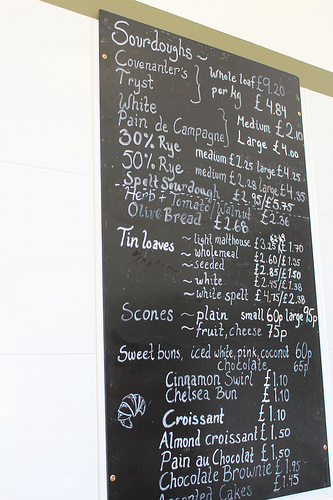 Sourdoughs ~
Covenanter's Whole loaf £9.20
Tryst per kg £4.84
White Medium £2.10
Pain de Campagne Large £4.00
30% Rye medium £2.25 large £4.25
50% Rye medium £2.28 large £4.35
Spelt Sourdough £2.95/£5.75
Herb + Tomato/Walnut £2.36
Olive Bread £2.68
Tin loaves ~ light malthouse £3.25/£1.70
~ wholemeal £2.60/£1.35
~ seeded £2.85/£1.50
~ white £2.45/£1.38
~ white spelt £4.75/£2.38
Scones ~ plain small 60p large 95p
~ fruit, cheese 75p
Sweet buns, iced white, pink, coconut 60p
chocolate 65p
Cinnamon Swirl £1.10
Chelsea Bun £1.10
Croissant £1.10
Almond croissant £1.50
Pain au Chocolat £1.50
Chocolate Brownie £1.95
Assorted Cakes £1.45